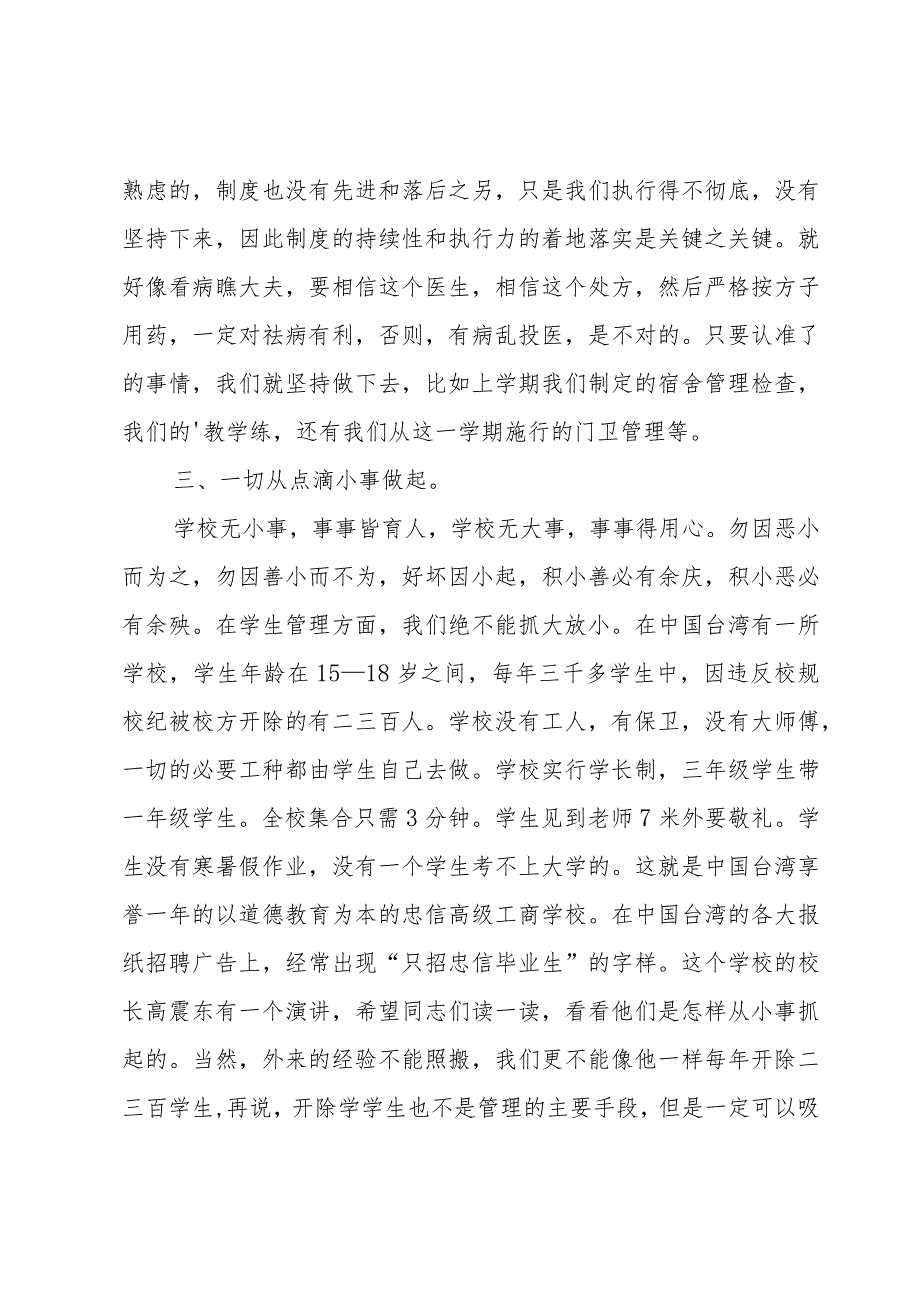 熟虑的，制度也没有先进和落后之另，只是我们执行得不彻底，没有
坚持下来，因此制度的持续性和执行力的着地落实是关键之关键。就
好像看病瞧大夫，要相信这个医生，相信这个处方，然后严格按方子
用药，一定对祛病有利，否则，有病乱投医，是不对的。只要认准了
的事情，我们就坚持做下去，比如上学期我们制定的宿舍管理检查，
我们的'教学练，还有我们从这一学期施行的门卫管理等。
三、一切从点滴小事做起。
学校无小事，事事皆育人，学校无大事，事事得用心。勿因恶小
而为之，勿因善小而不为，好坏因小起，积小善必有余庆，积小恶必
有余殃。在学生管理方面，我们绝不能抓大放小。在中国台湾有一所
学校，学生年龄在 15—18 岁之间，每年三千多学生中，因违反校规
校纪被校方开除的有二三百人。学校没有工人，有保卫，没有大师傅，
一切的必要工种都由学生自己去做。学校实行学长制，三年级学生带
一年级学生。全校集合只需 3 分钟。学生见到老师 7 米外要敬礼。学
生没有寒暑假作业，没有一个学生考不上大学的。这就是中国台湾享
誉一年的以道德教育为本的忠信高级工商学校。在中国台湾的各大报
纸招聘广告上，经常出现“只招忠信毕业生”的字样。这个学校的校
长高震东有一个演讲，希望同志们读一读，看看他们是怎样从小事抓
起的。当然，外来的经验不能照搬，我们更不能像他一样每年开除二
三百学生,再说，开除学学生也不是管理的主要手段，但是一定可以吸